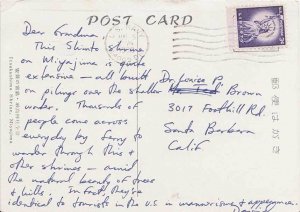 POST CARD
Dear Grandma,
This Shinto shrine
on Miyajima is quite
extensive — all built
on pilings over the shallow
water. Thousands of
people come across
everyday by ferry to
wander through this &
other shrines — amid
the natural beauty of trees
& hills. In fact they're
identical to tourists in the U.S. in mannerisms & appearance.
Dr. Louise P.
Brown
3017 Foothill Rd.
Santa Barbara
Calif
郵便はがき
Itsukushima Shrine, Miyajima